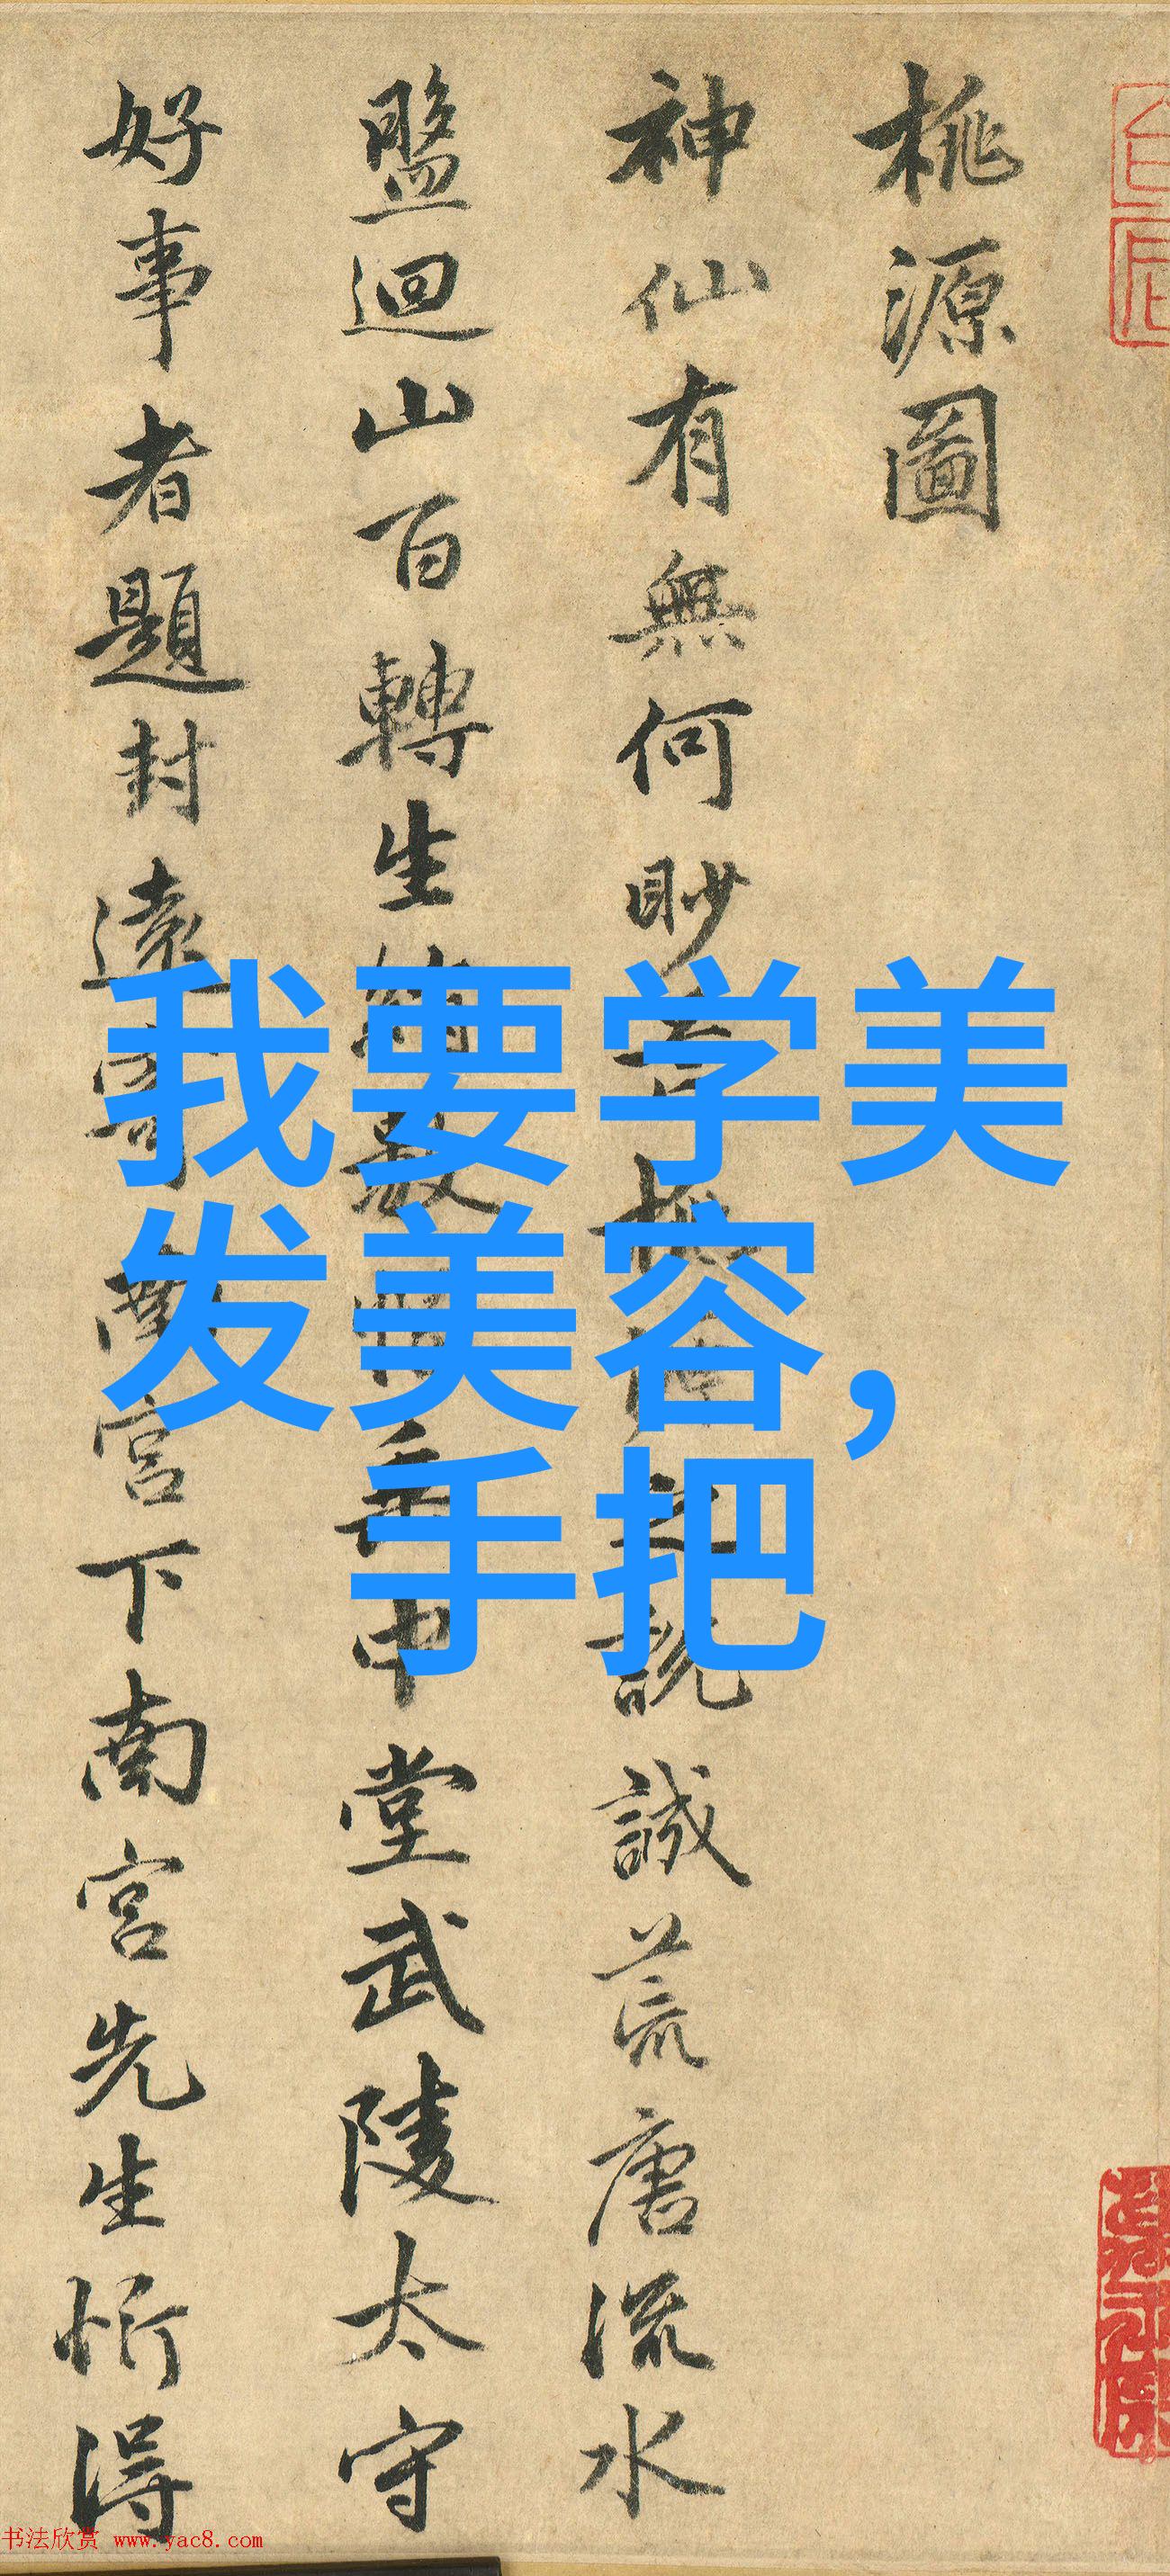 桃源圖
神仙有無何眇
說誠荒唐流水
盤迴山百轉生綃數
中堂武陵太守
好事者題封遠寄南宮下南宮先生忻得
我要学美
发美容，
手把
书法欣赏 www.yac8.com